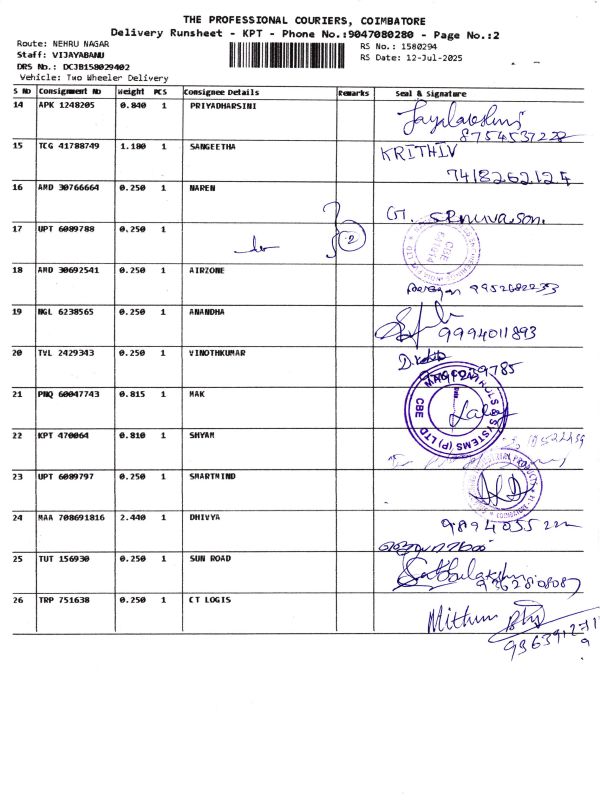 THE PROFESSIONAL COURIERS, COIMBATORE
Delivery Runsheet - KPT - Phone No.:9047080280 - Page No.:2
Route: NEHRU NAGAR
Staff: VIJAYABANU
DRS No.: DCJB158029402
Vehicle: Two Wheeler Delivery
RS No.: 1580294
RS Date: 12-Jul-2025
S No Consignment No Weight PCS Consignee Details Remarks Seal & Signature
14 APK 1248205 0.840 1 PRIYADHARSINI
8754537228
15 TCG 41788749 1.180 1 SANGEETHA KRITHIV
7418262124
16 AMD 30766664 0.250 1 NAREN
17 UPT 6089788 0.250 1 2
18 AMD 30692541 0.250 1 AIRZONE
9952682233
19 NGL 6238565 0.250 1 ANANDHA
9994011893
20 TVL 2429343 0.250 1 VINOTHKUMAR
21 PNQ 60047743 0.815 1 MAK
SYSTEMS (P) LTD CBE
22 KPT 470064 0.810 1 SHYAM
23 UPT 6089797 0.250 1 SMARTMIND
24 MAA 708691816 2.440 1 DHIVYA
25 TUT 156930 0.250 1 SUN ROAD
26 TRP 751638 0.250 1 CT LOGIS
Mithun